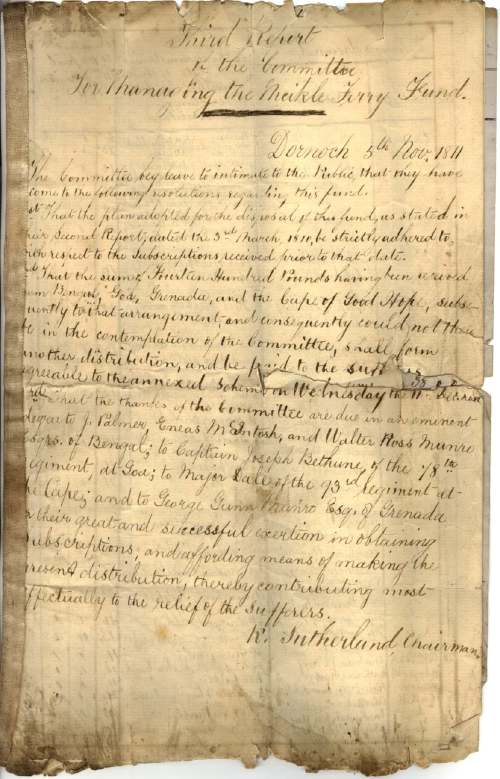 Third Report
of the Committee
For Managing the Meikle Ferry Fund.
Dornoch 5th Nov. 1811
The Committee beg leave to intimate to the Public, that they have
come to the following resolutions regarding this fund.
st That the plan adopted for the disposal of this fund, as stated in
their Second Report, dated the 3rd March, 1810, be strictly adhered to,
with respect to the Subscriptions received prior to that date.
That the sum of Thirteen Hundred Pounds having been received
from Bengal, Goa, Grenada, and the Cape of Good Hope, subse-
quently to that arrangement, and consequently could not then
be in the contemplation of the Committee, shall form
another distribution, and be paid to the
agreeable to the annexed Scheme on Wednesday the 11th
3rd That the thanks of the Committee are due in an eminent
degree to J. Palmer, Eneas McIntosh, and Walter Ross Munro
Esqrs. of Bengal; to Captain Joseph Bethune, of the 78th
regiment, at Goa; to Major Dale of the 93rd regiment at
the Cape; and to George Gunn Munro Esq. of Grenada
for their great and successful exertion in obtaining
subscriptions, and affording means of making the
present distribution, thereby contributing most
effectually to the relief of the Sufferers.
R. Sutherland, Chairman.